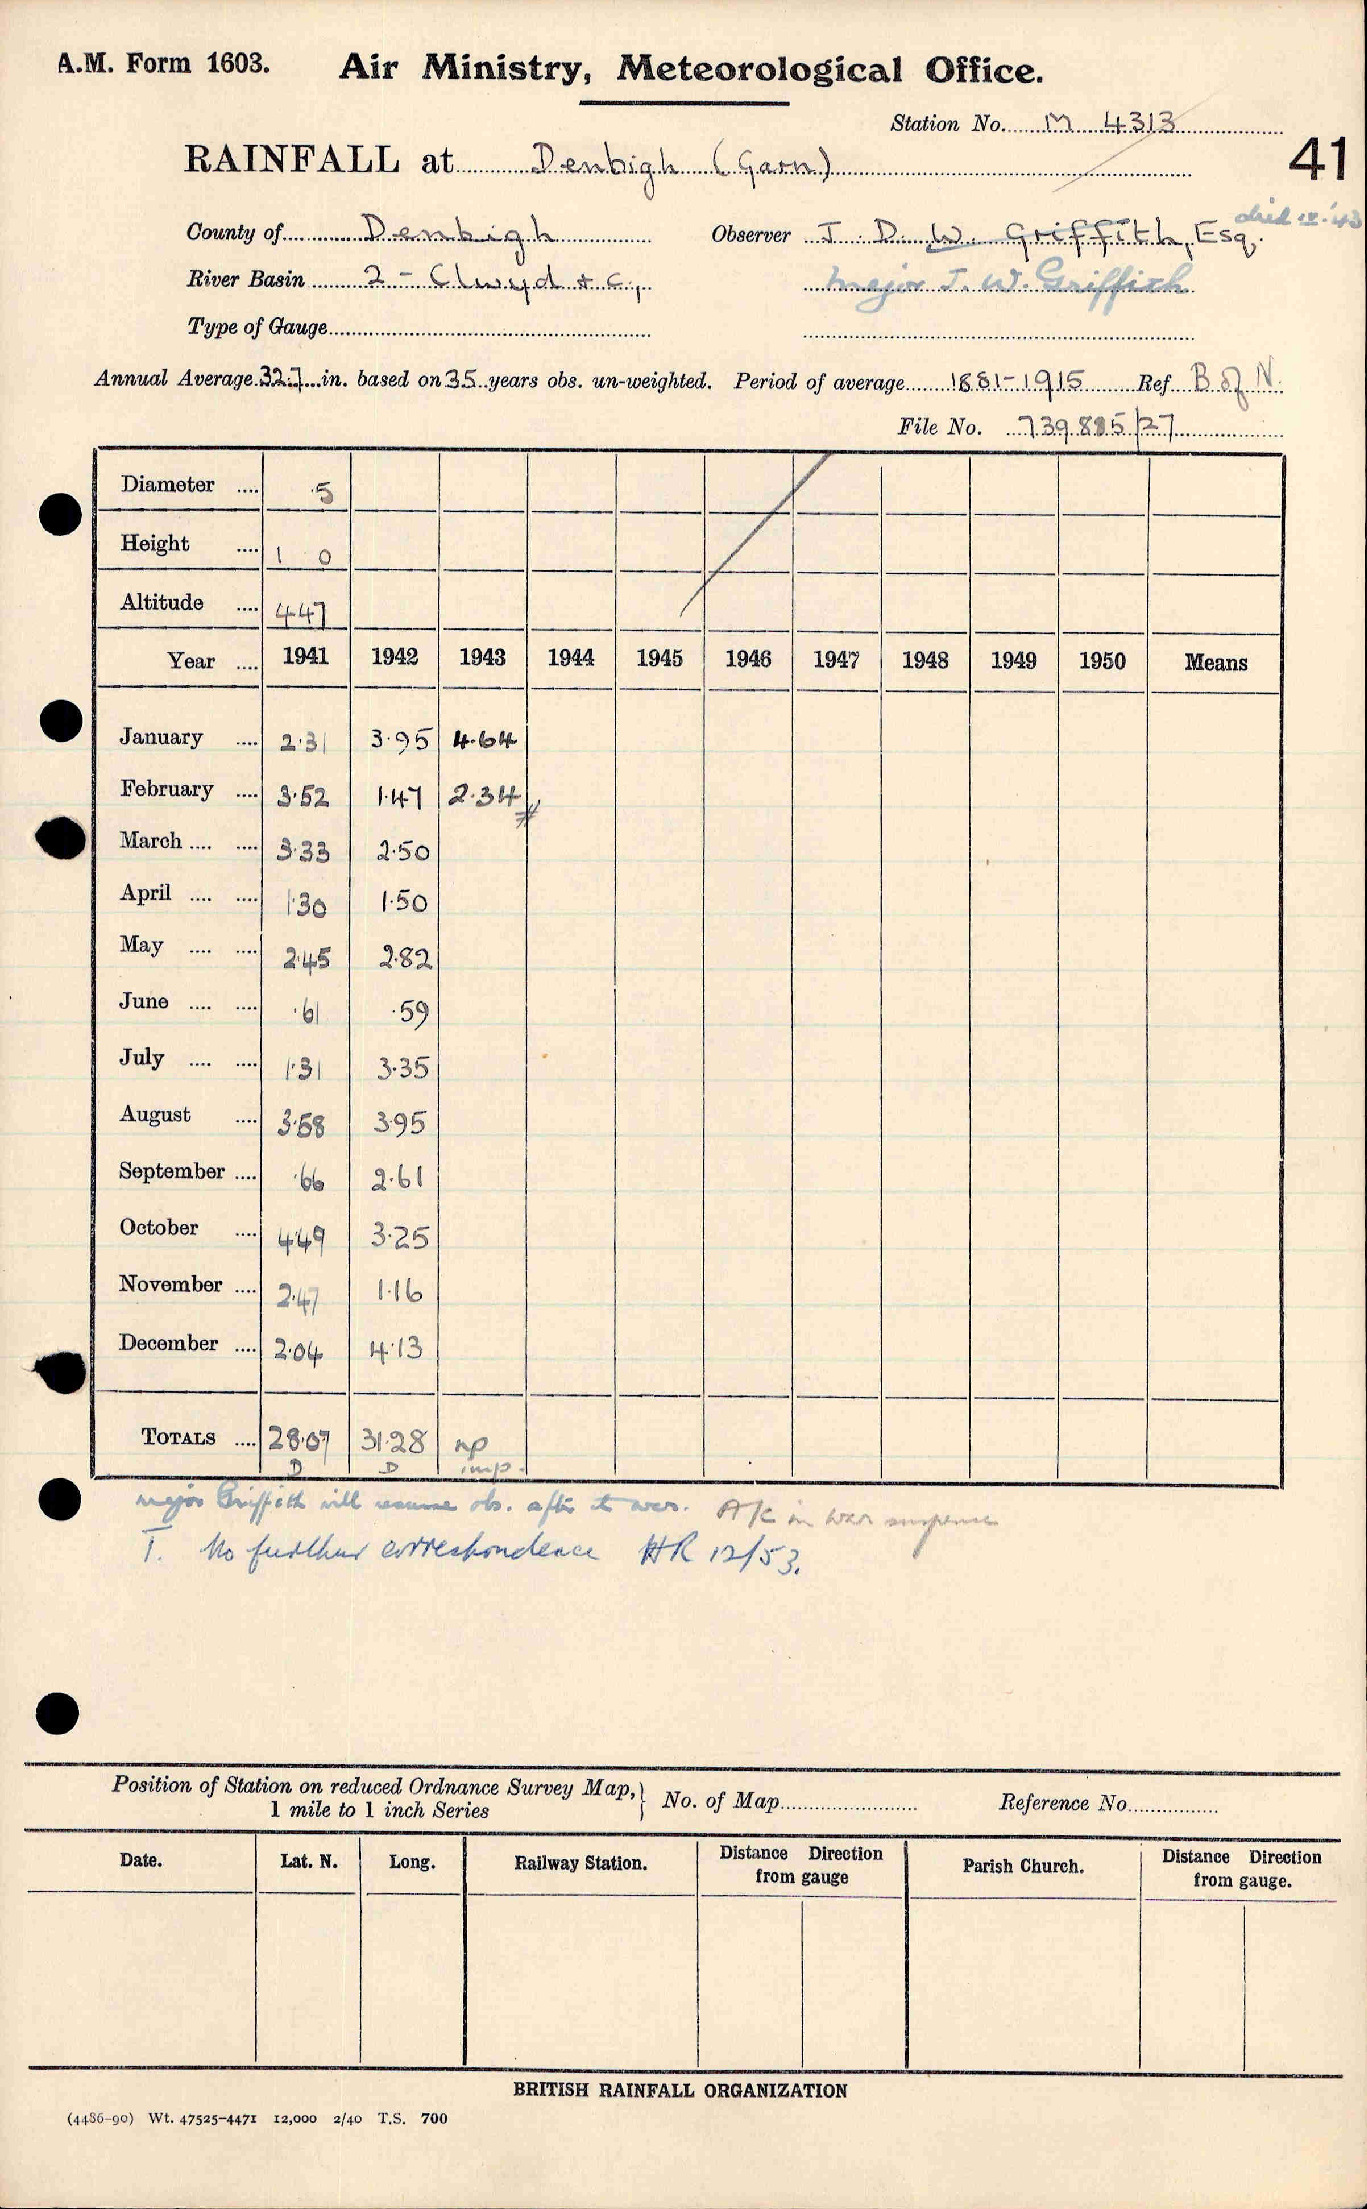 A.M. Form 1603. Air Ministry, Meteorological Office.
Station No. M 4313
41
RAINFALL at Denbigh (Garn)
died IX.'43
County of Denbigh Observer J. D. W. Griffith, Esq.
River Basin 2 - Clwyd &c., Major J. W. Griffith
Type of Gauge
Annual Average 32.7 in. based on 35 years obs. un-weighted. Period of average 1881-1915 Ref B of N.
File No. 739885/27
Diameter .... 5
Height .... 1 0
Altitude .... 447
Year .... 1941 1942 1943 1944 1945 1946 1947 1948 1949 1950 Means
January .... 2.31 3.95 4.64
February .... 3.52 1.47 2.34 #
March .... .... 3.33 2.50
April .... .... 1.30 1.50
May .... .... 2.45 2.82
June .... .... .61 .59
July .... .... 1.31 3.35
August .... 3.58 3.95
September .... .66 2.61
October .... 4.49 3.25
November .... 2.47 1.16
December .... 2.04 4.13
TOTALS .... 28.07 31.28 np
D D imp.
Major Griffith will resume obs. after the war. A/C in war suspense
T. No further correspondence HR 12/53.
Position of Station on reduced Ordnance Survey Map,} No. of Map Reference No.
1 mile to 1 inch Series
Date. Lat. N. Long. Railway Station. Distance Direction from gauge Parish Church. Distance Direction from gauge.
BRITISH RAINFALL ORGANIZATION
(4486-90) Wt. 47525-4471 12,000 2/40 T.S. 700